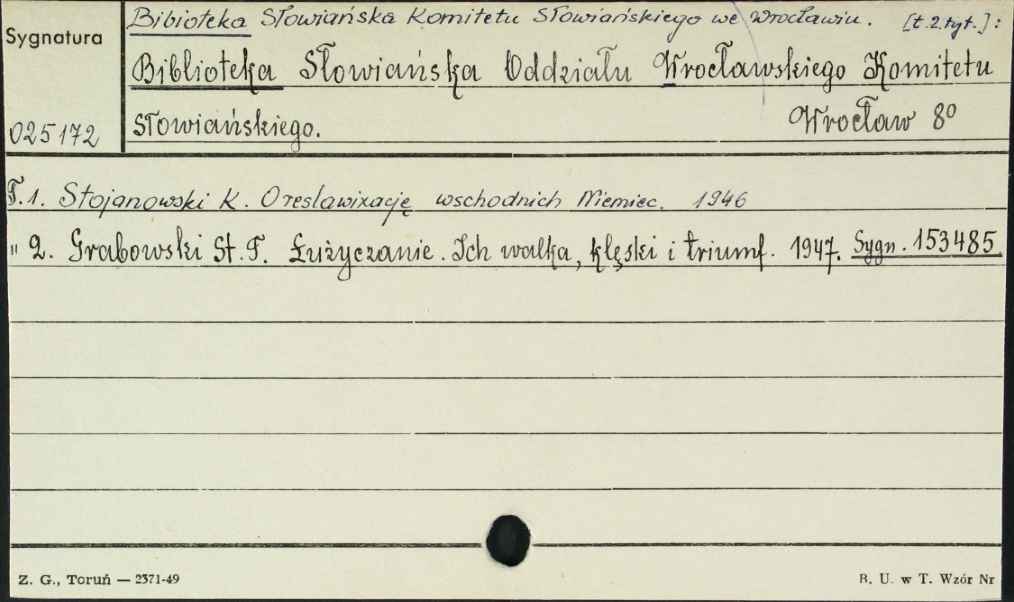 Bibioteka Słowiańska Komitetu Słowiańskiego we Wrocławiu. [t. 2. tyt.]:
Sygnatura
Biblioteka Słowiańska Oddziału Wrocławskiego Komitetu
025172 Słowiańskiego. Wrocław 8°
T.1. Stojanowski K. O reslawizację wschodnich Niemiec. 1946
" 2. Grabowski St. F. Łużyczanie. Ich walka, klęski i triumf. 1947. Sygn. 153485.
Z. G., Toruń — 2371-49 B. U. w T. Wzór Nr